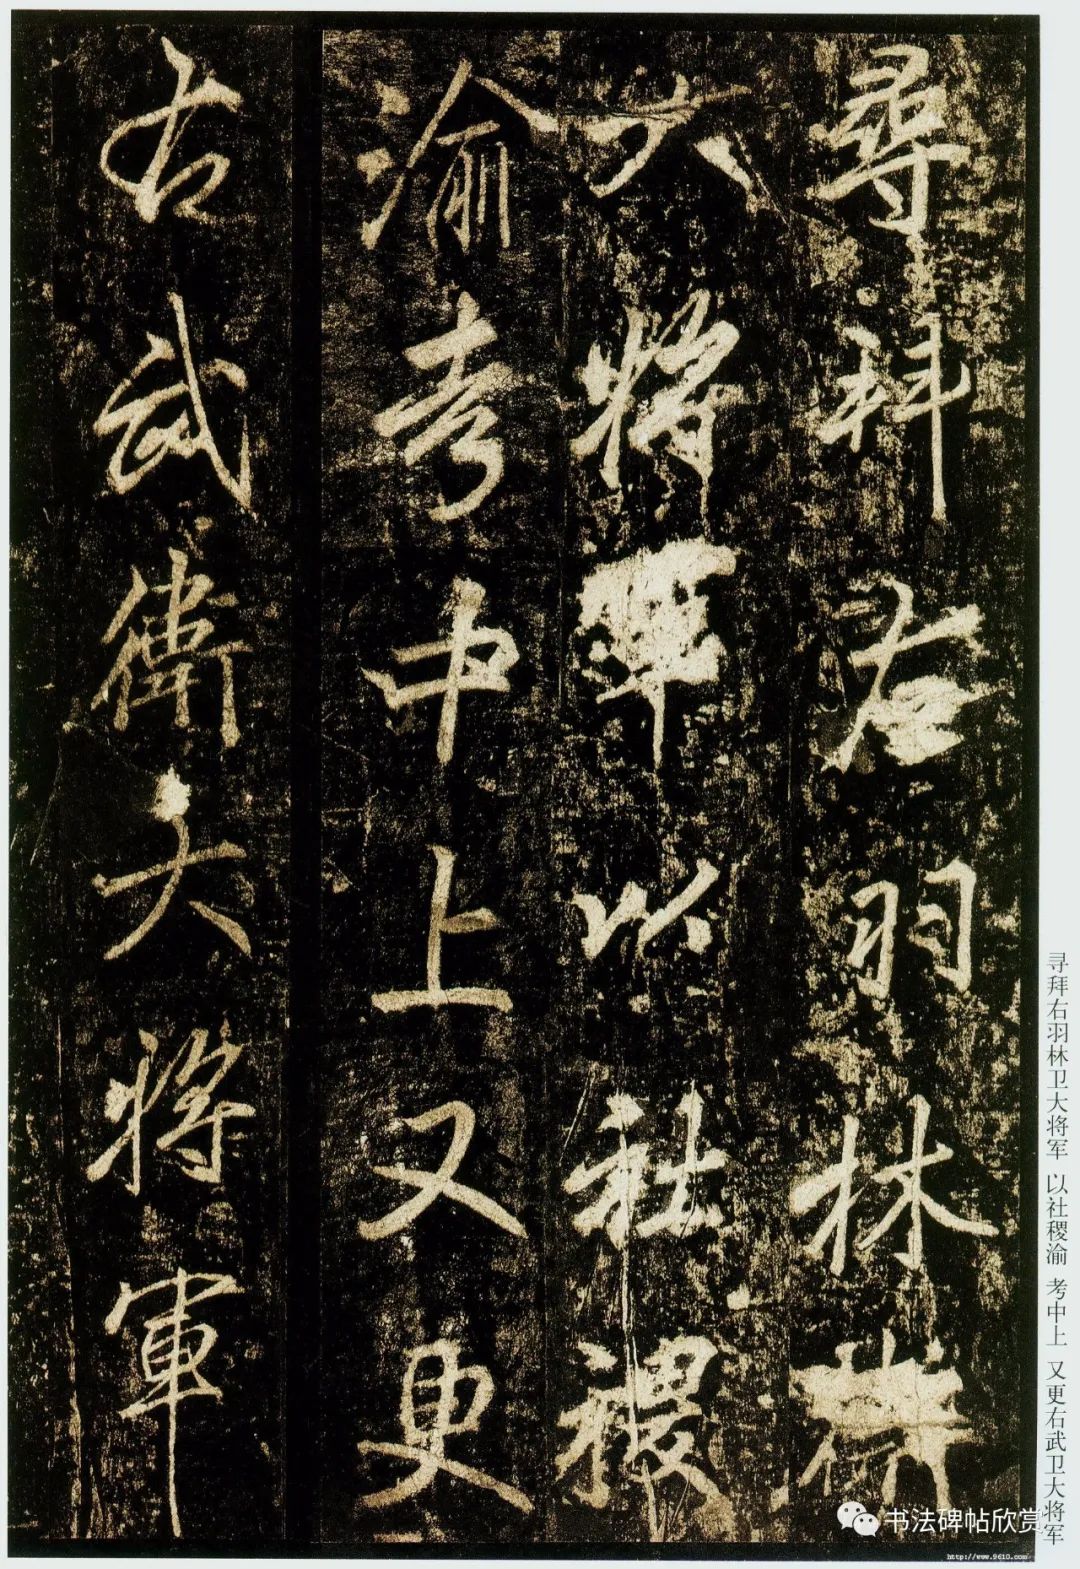 尋拜右羽林衛
大將軍以社稷
渝考中上又更
右武衛大將軍
寻拜右羽林卫大将军 以社稷渝 考中上 又更右武卫大将军
书法碑帖欣赏
http://www.9610.com